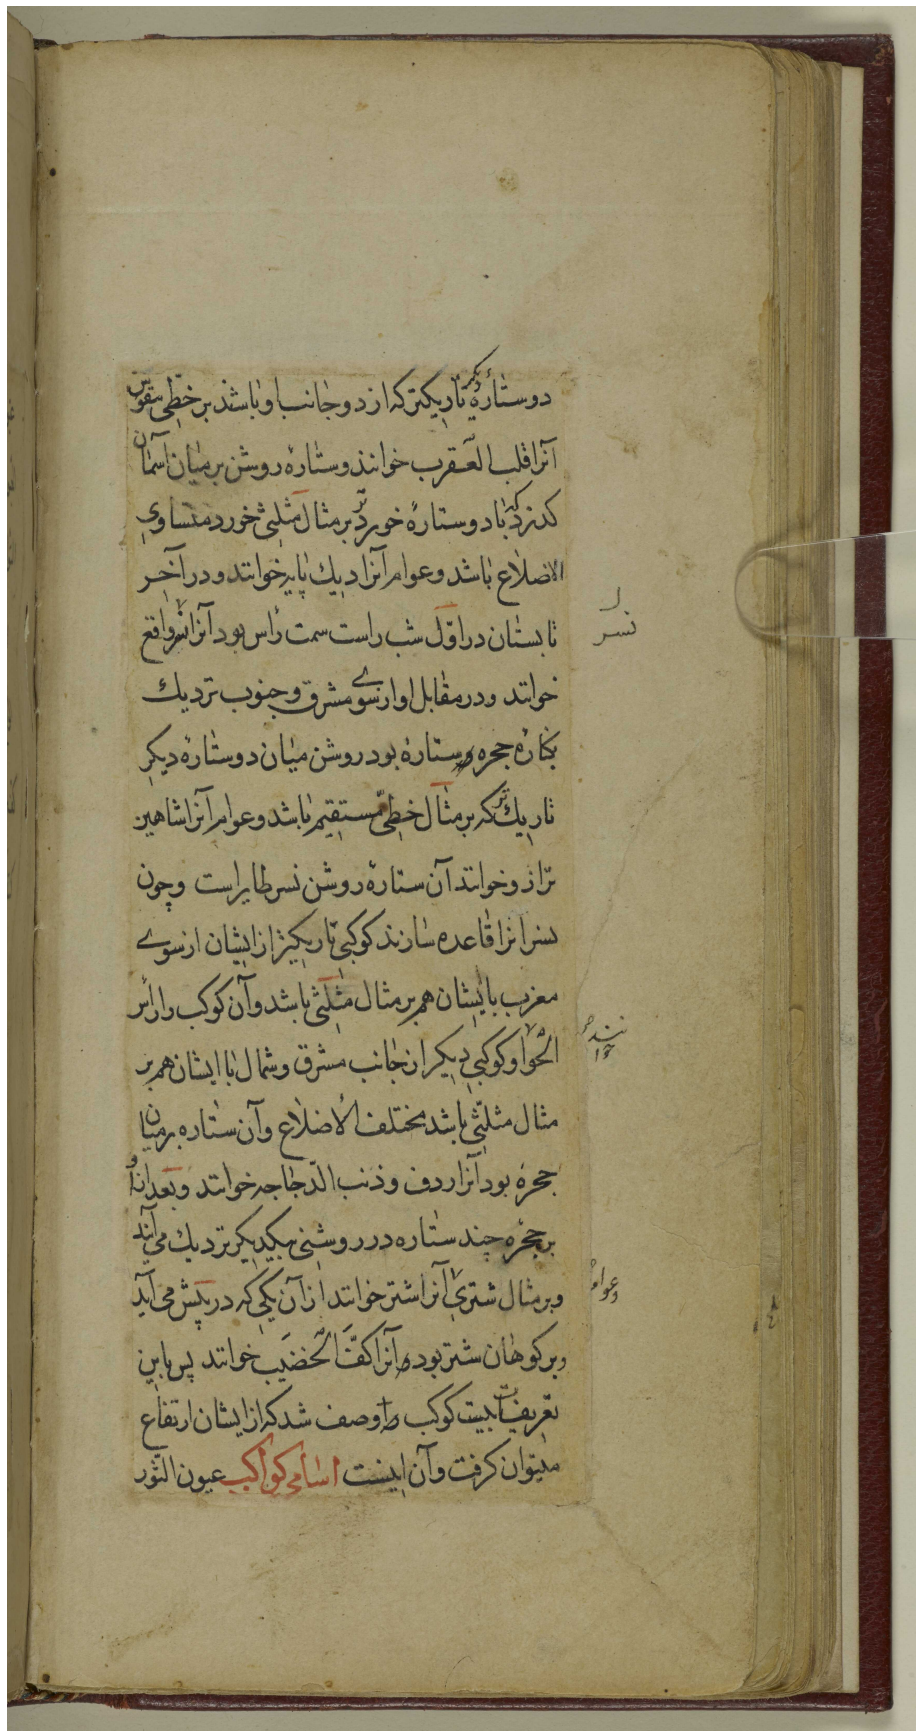 دو ستارهٔ دیگر تاریکتر که از دو جانب او باشند بر خطی مقوس
آنرا قلب العقرب خوانند و ستارهٔ روشن بر میان آسمان
کدنرد که با دو ستارهٔ خوردتر بر مثال مثلثی خورد متساوی
الاضلاع باشد و عوام آنرا دیک پایه خوانند و در آخر
تابستان در اوّل شب راست سمت رأس بود آنرا نسر واقع
نسر
خوانند و در مقابل او از سوی مشرق و جنوب نزدیك
بکنارهٔ مجره ستارهٔ بود روشن میان دو ستارهٔ دیکر
تاریك تر که بر مثال خطی مستقیم باشد و عوام آنرا شاهین
ترازو خوانند آن ستارهٔ روشن نسر طایر است و چون
نسر انرا قاعده سازند کوکبی تاریکتر از ایشان از سوی
مغرب با ایشان هم بر مثال مثلثی باشد و آن کوکب را رأس
الحوّا و کوکبی دیکر از جانب مشرق و شمال با ایشان هم بر
خوانند
مثال مثلّثی باشد مختلف الأضلاع و آن ستاره بر میان
مجره بود آنرا ردف و ذنب الدّجاجه خوانند و بعد از او
بر مجره چند ستاره در روشنی بیکدیکر نزدیك می آیند
و بر مثال شتری آنرا شتر خوانند از آن یکی که در پیش می آید
و عوام
و بر کوهان شتر بود آنرا کفّ الخضیب خوانند پس باین
تعریف بیست کوکب را وصف شد که از ایشان ارتفاع
میتوان کرفت و آن اینست اسامی کواکب عیون الثّور